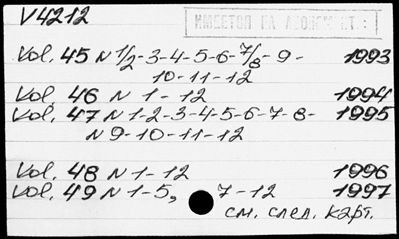 V4212
ИМЕЕТСЯ НА
Vol. 45 N 1/2-3-4-5-6-7/8-9- 1993
10-11-12
Vol. 46 N 1-12 1994
Vol. 47 N 1-2-3-4-5-6-7-8- 1995
N 9-10-11-12
Vol. 48 N 1-12 1996
Vol. 49 N 1-5, 7-12 1997
см. след. карт.